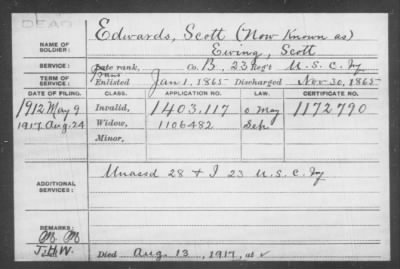 DEAD
Edwards, Scott (Now Known as)
NAME OF SOLDIER: Ewing, Scott
SERVICE: Late rank, Co. B, 23 Reg't U.S.C. Inf
TERM OF SERVICE: Enlisted Jan 1, 1865 Discharged Nov 30, 1865
DATE OF FILING. CLASS. APPLICATION NO. LAW. CERTIFICATE NO.
1912 May 9 Invalid, 1403,117 o May 1172790
1917 Aug. 24 Widow, 1106482 Sep
Minor,
ADDITIONAL SERVICES: Unassd 28 + I 23 U.S.C. Inf
REMARKS:
Died Aug. 13, 1917, at